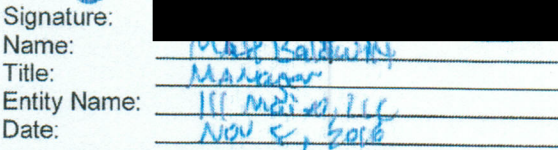 Signature:
Name: Matt Baldwin
Title: Manager
Entity Name: 111
Date: Nov